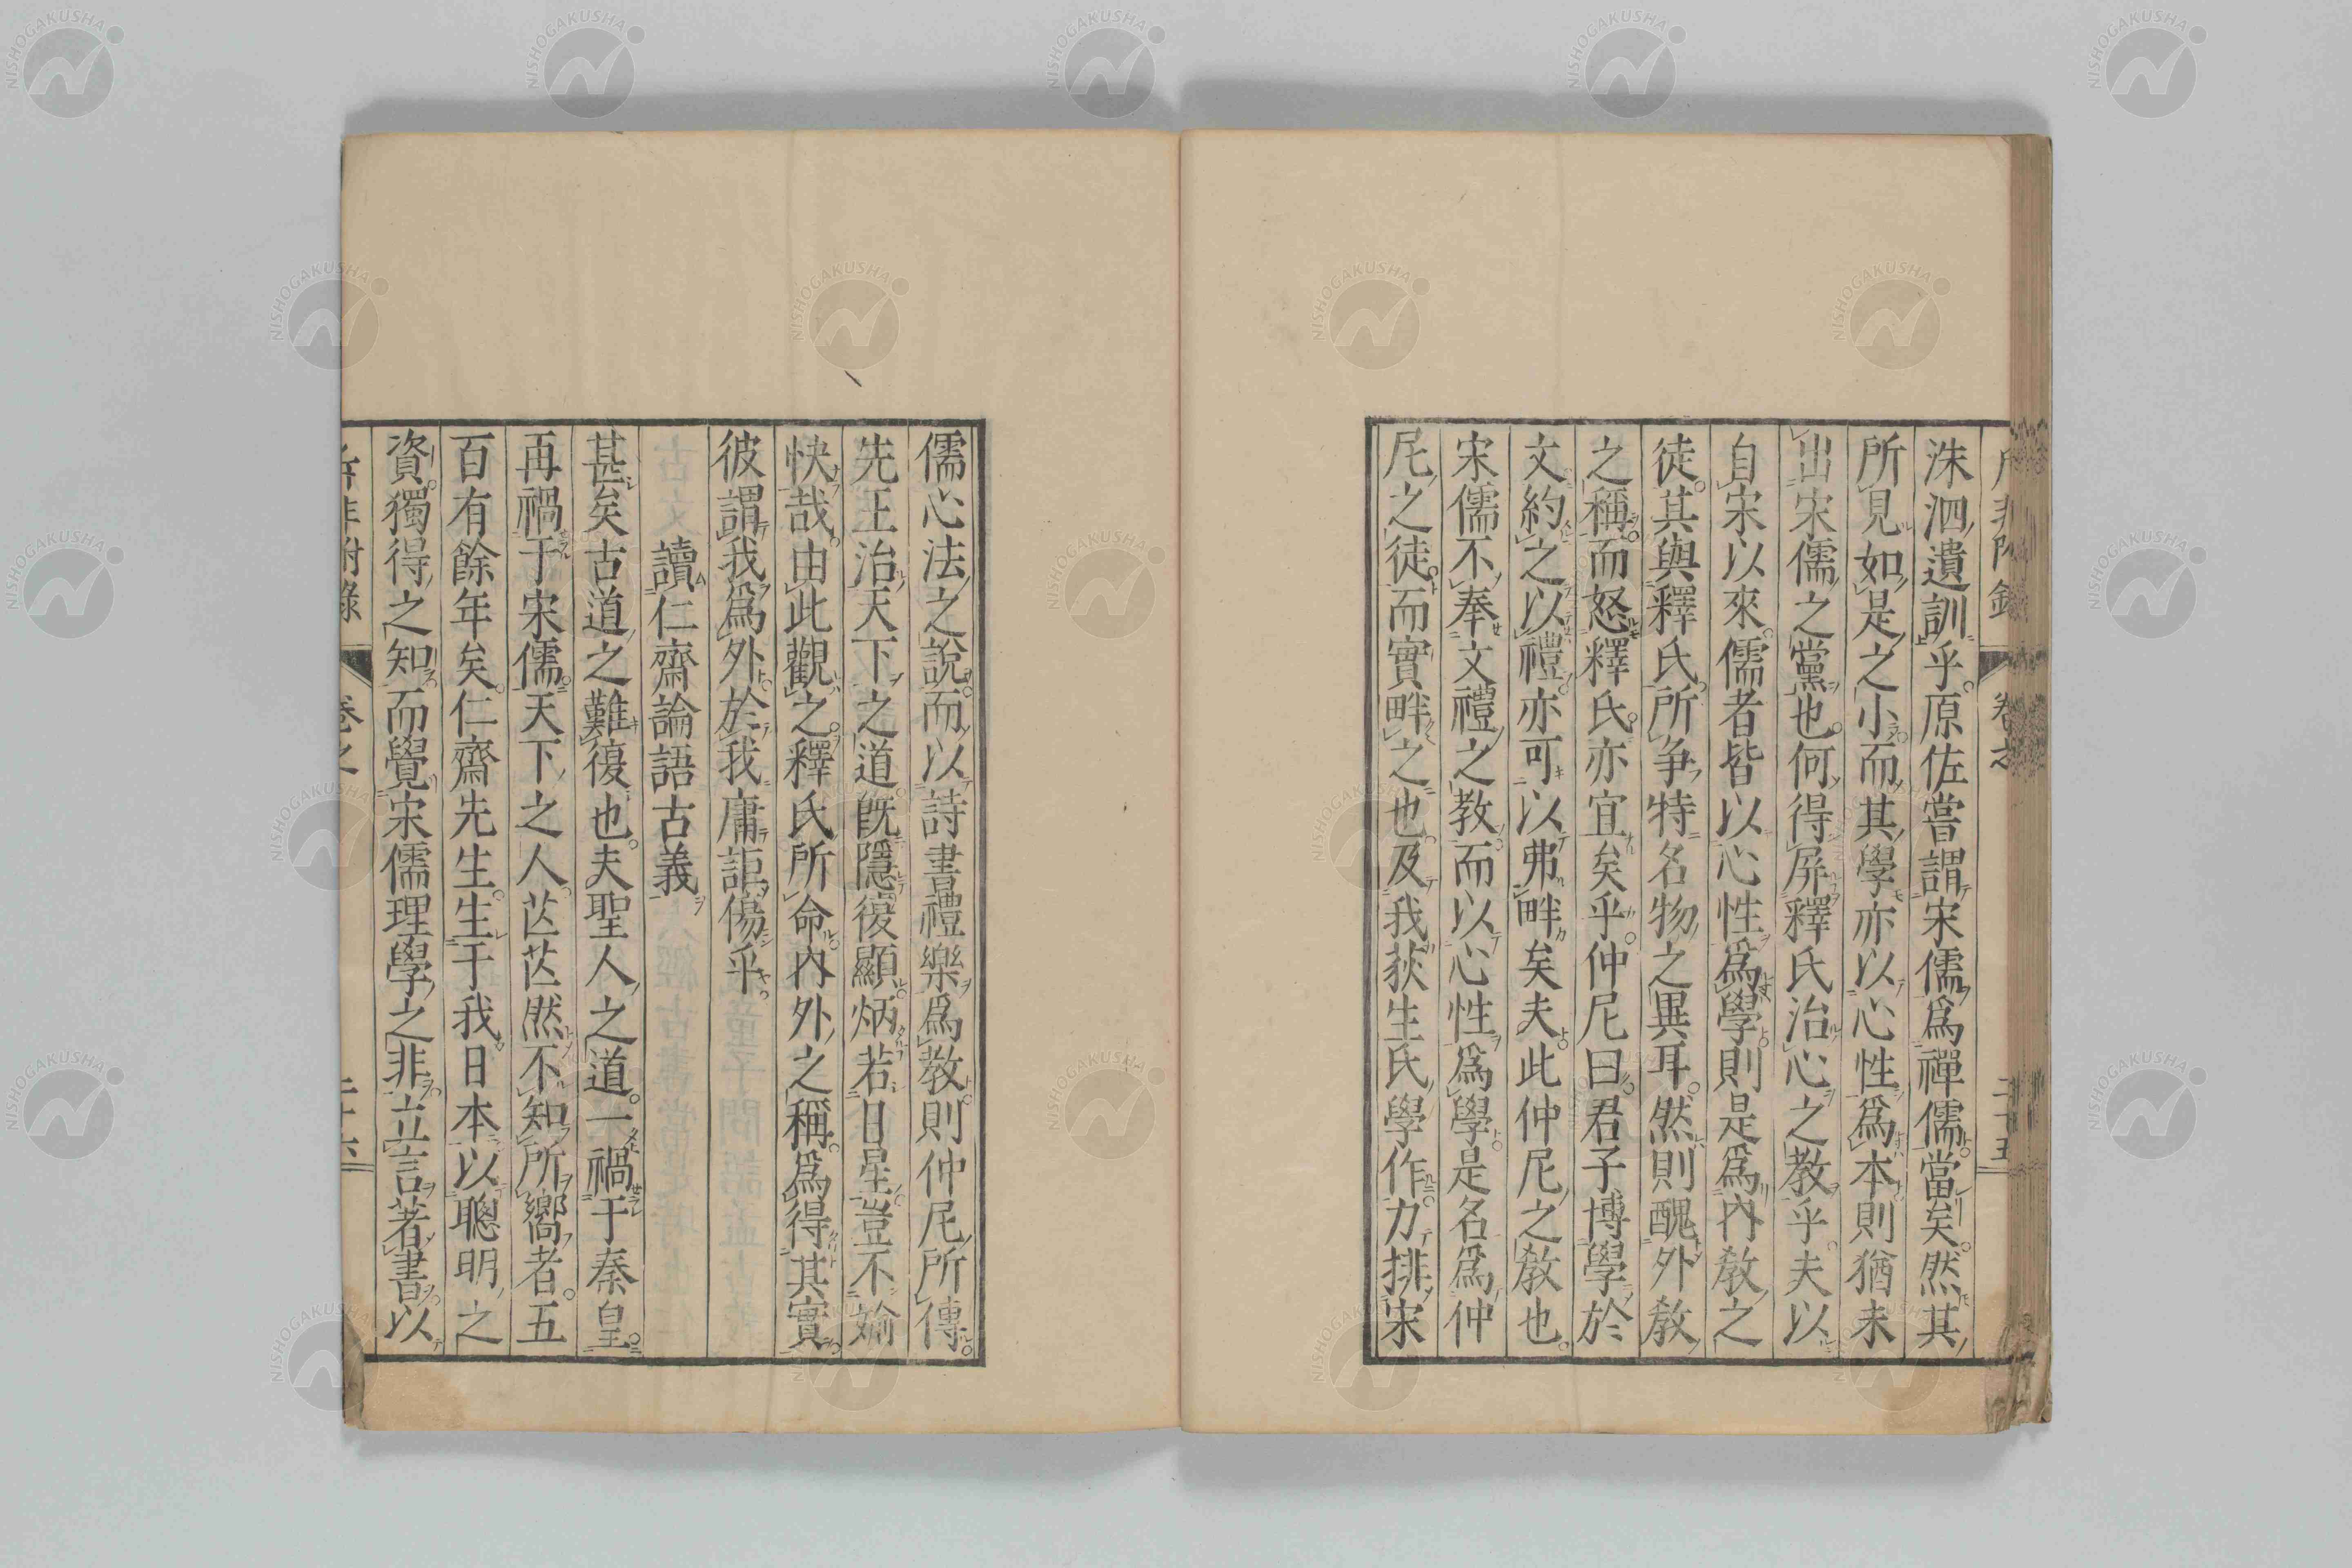 洙泗遺訓乎原佐嘗謂宋儒爲禪儒當矣然其
所見如是之小而其學亦以心性爲本則猶未
出宋儒之黨也何得屏釋氏治心之教乎夫以
自宋以來儒者皆以心性爲學則是爲內教之
徒其與釋氏所爭特名物之異耳然則醜外教
之稱而怒釋氏亦宜矣乎仲尼曰君子博學於
文約之以禮亦可以弗畔矣夫此仲尼之教也
宋儒不奉文禮之教而以心性爲學是名爲仲
尼之徒而實畔之也及我荻生氏學作力排宋
儒心法之說而以詩書禮樂爲教則仲尼所傳
先王治天下之道既隱復顯炳若日星豈不婾
快哉由此觀之釋氏所命內外之稱爲得其實
彼謂我爲外於我庸詎傷乎
讀仁齋論語古義
甚矣古道之難復也夫聖人之道一禍于秦皇
再禍于宋儒天下之人芒芒然不知所嚮者五
百有餘年矣仁齋先生生于我日本以聰明之
資獨得之知而覺宋儒理學之非立言著書以
斥非附錄 卷之 二十五
斥非附錄 卷之 二十六
NISHOGAKUSHA